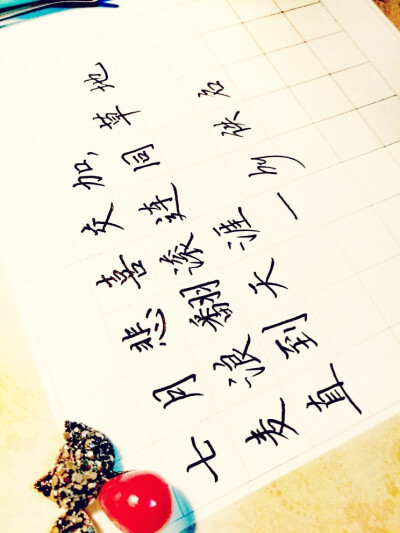 七月悲喜交加,
麦浪翻滚连同草地
直到天涯
一 佚名